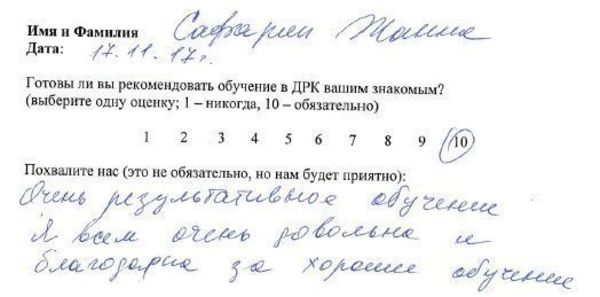 Имя и Фамилия Сафарии Жанна
Дата: 17.11.17г.
Готовы ли вы рекомендовать обучение в ДРК вашим знакомым?
(выберите одну оценку; 1 – никогда, 10 – обязательно)
1 2 3 4 5 6 7 8 9 10
Похвалите нас (это не обязательно, но нам будет приятно):
Очень результативное обучение
Я всем очень довольна и
благодарна за хорошие обучение